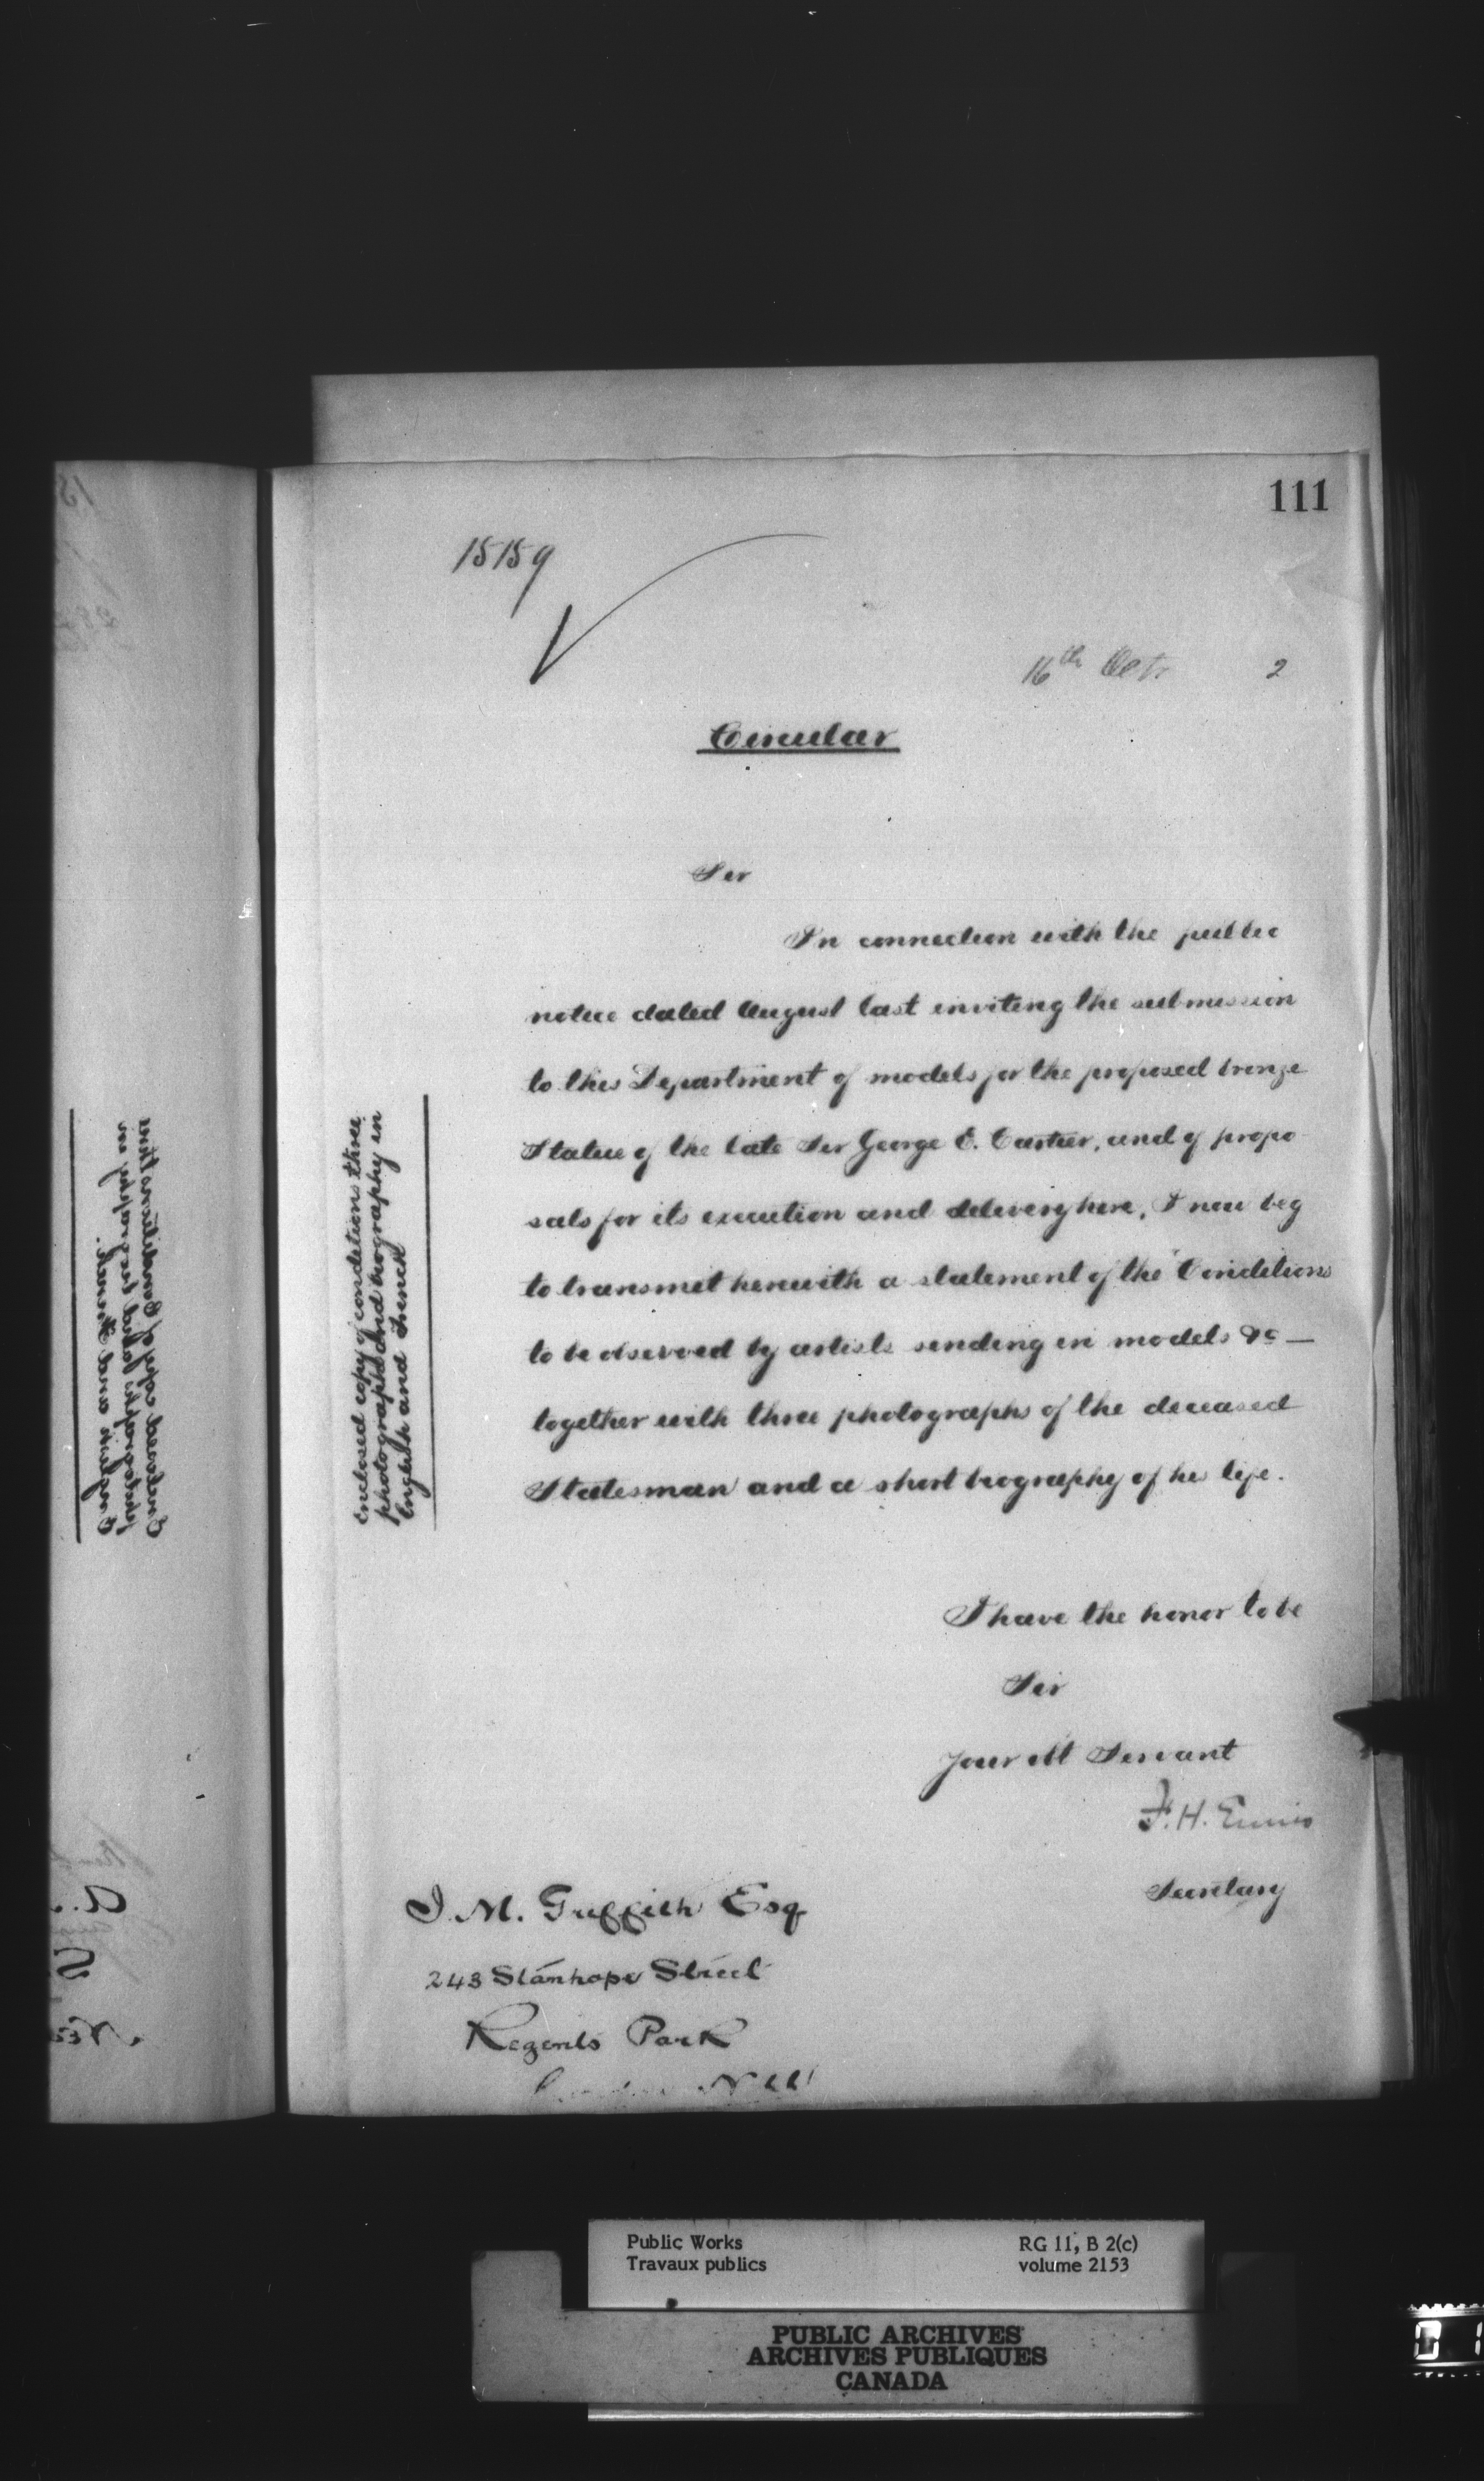 111
15159
16th Octr 2
Circular
Sir
In connection with the public
notice dated August last inviting the submission
to this Department of models for the proposed bronze
Statue of the late Sir George E. Cartier, and of propo
sals for its execution and delivery here, I now beg
to transmit herewith a statement of the Conditions
to be observed by artists sending in models &c —
together with three photographs of the deceased
Statesman and a short biography of his life.
Enclosed copy of conditions three
photographs and biography in
English and French
I have the honor to be
Sir
Your obt Servant
F. H. Ennis
Secretary
J. M. Griffith Esq
243 Stanhope Street
Regents Park
London NW
Public Works
Travaux publics
RG 11, B 2(c)
volume 2153
PUBLIC ARCHIVES
ARCHIVES PUBLIQUES
CANADA